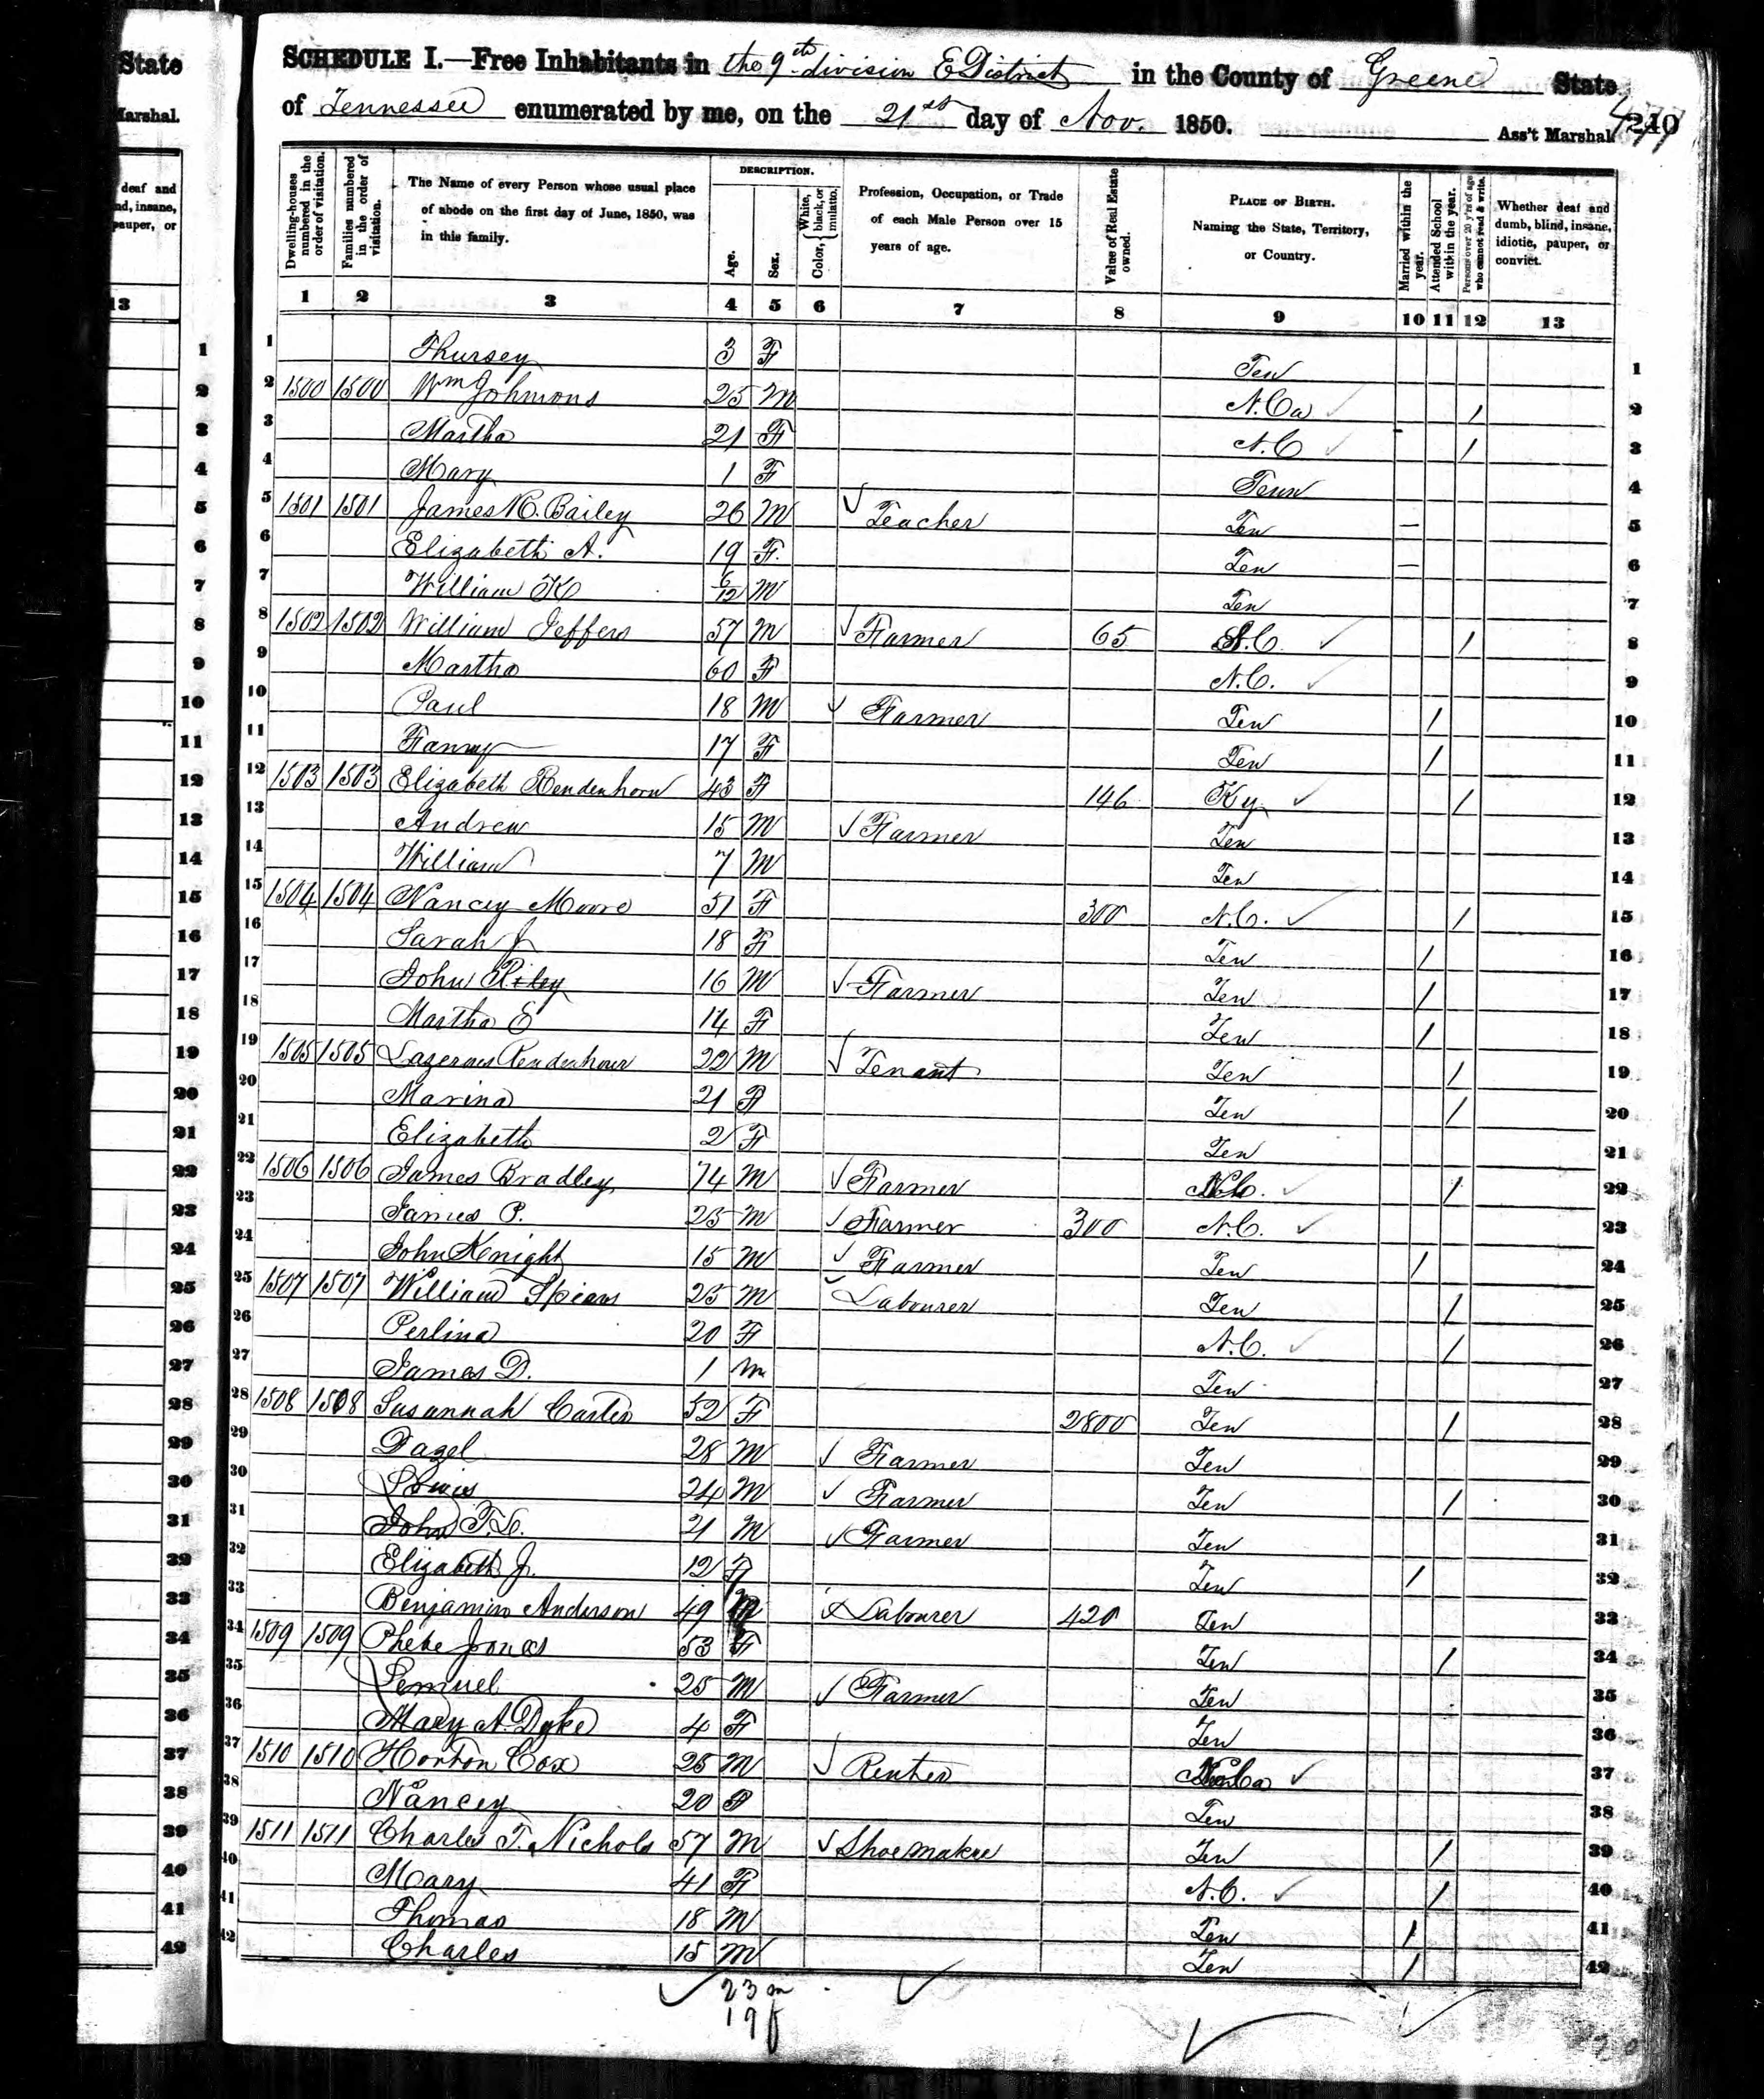 State
Marshal.
deaf and
nd, insane,
pauper, or
13
SCHEDULE I.—Free Inhabitants in the 9th division E District in the County of Greene State
of Tennessee enumerated by me, on the 21st day of Nov. 1850. Ass't Marshal. 240
Dwelling-houses numbered in the order of visitation.
Families numbered in the order of visitation.
The Name of every Person whose usual place of abode on the first day of June, 1850, was in this family.
DESCRIPTION.
Age.
Sex.
Color, White, black, or mulatto.
Profession, Occupation, or Trade of each Male Person over 15 years of age.
Value of Real Estate owned.
PLACE OF BIRTH. Naming the State, Territory, or Country.
Married within the year.
Attended School within the year.
Persons over 20 y'rs of age who cannot read & write.
Whether deaf and dumb, blind, insane, idiotic, pauper, or convict.
1 2 3 4 5 6 7 8 9 10 11 12 13
1 Thursey 3 F Ten 1
2 1500 1500 Wm Johnsons 25 M N. Ca / 2
3 Martha 21 F N.C / 3
4 Mary 1 F Tenn 4
5 1501 1501 James C. Bailey 26 M Teacher Ten — 5
6 Elizabeth A. 19 F. Ten — 6
7 William K 6/12 M Ten 7
8 1502 1502 William Jeffers 57 M Farmer 65 N.C. / 8
9 Martha 60 F N.C. 9
10 Paul 18 M Farmer Ten / 10
11 Fanny 17 F Ten / 11
12 1503 1503 Elizabeth 43 F 146 Ky / 12
13 Andrew 15 M Farmer Ten 13
14 William 7 M Ten 14
15 1504 1504 Nancy Moore 51 F 300 N.C. / 15
16 Sarah J 18 F Ten / 16
17 John Riley 16 M Farmer Ten / 17
18 Martha E 14 F Ten / 18
19 1505 1505 22 M Tenant Ten / 19
20 Marina 21 F Ten / 20
21 Elizabeth 2 F Ten 21
22 1506 1506 James Bradley 74 M Farmer N.C. / 22
23 James P. 25 M Farmer 300 N.C. 23
24 John Knight 15 M Farmer Ten / 24
25 1507 1507 William Spears 25 M Labourer Ten / 25
26 Perlina 20 F N.C. / 26
27 James D. 1 M Ten 27
28 1508 1508 Susannah Carter 52 F 2800 Ten / 28
29 Dazel 28 M Farmer Ten 29
30 24 M Farmer Ten / 30
31 John 21 M Farmer Ten 31
32 Elizabeth J. 12 F Ten / 32
33 Benjamin Anderson 49 M Labourer 420 Ten 33
34 1509 1509 Phebe Jones 53 F Ten / 34
35 Lemuel 25 M Farmer Ten 35
36 Mary A. Dyke 4 F Ten 36
37 1510 1510 Horton Cox 25 M Renter 37
38 Nancy 20 F Ten 38
39 1511 1511 Charles T. Nichols 57 M Shoemaker Ten / 39
40 Mary 41 F N.C. / 40
41 Thomas 18 M Ten / 41
42 Charles 15 M Ten / 42
23 m
19 f